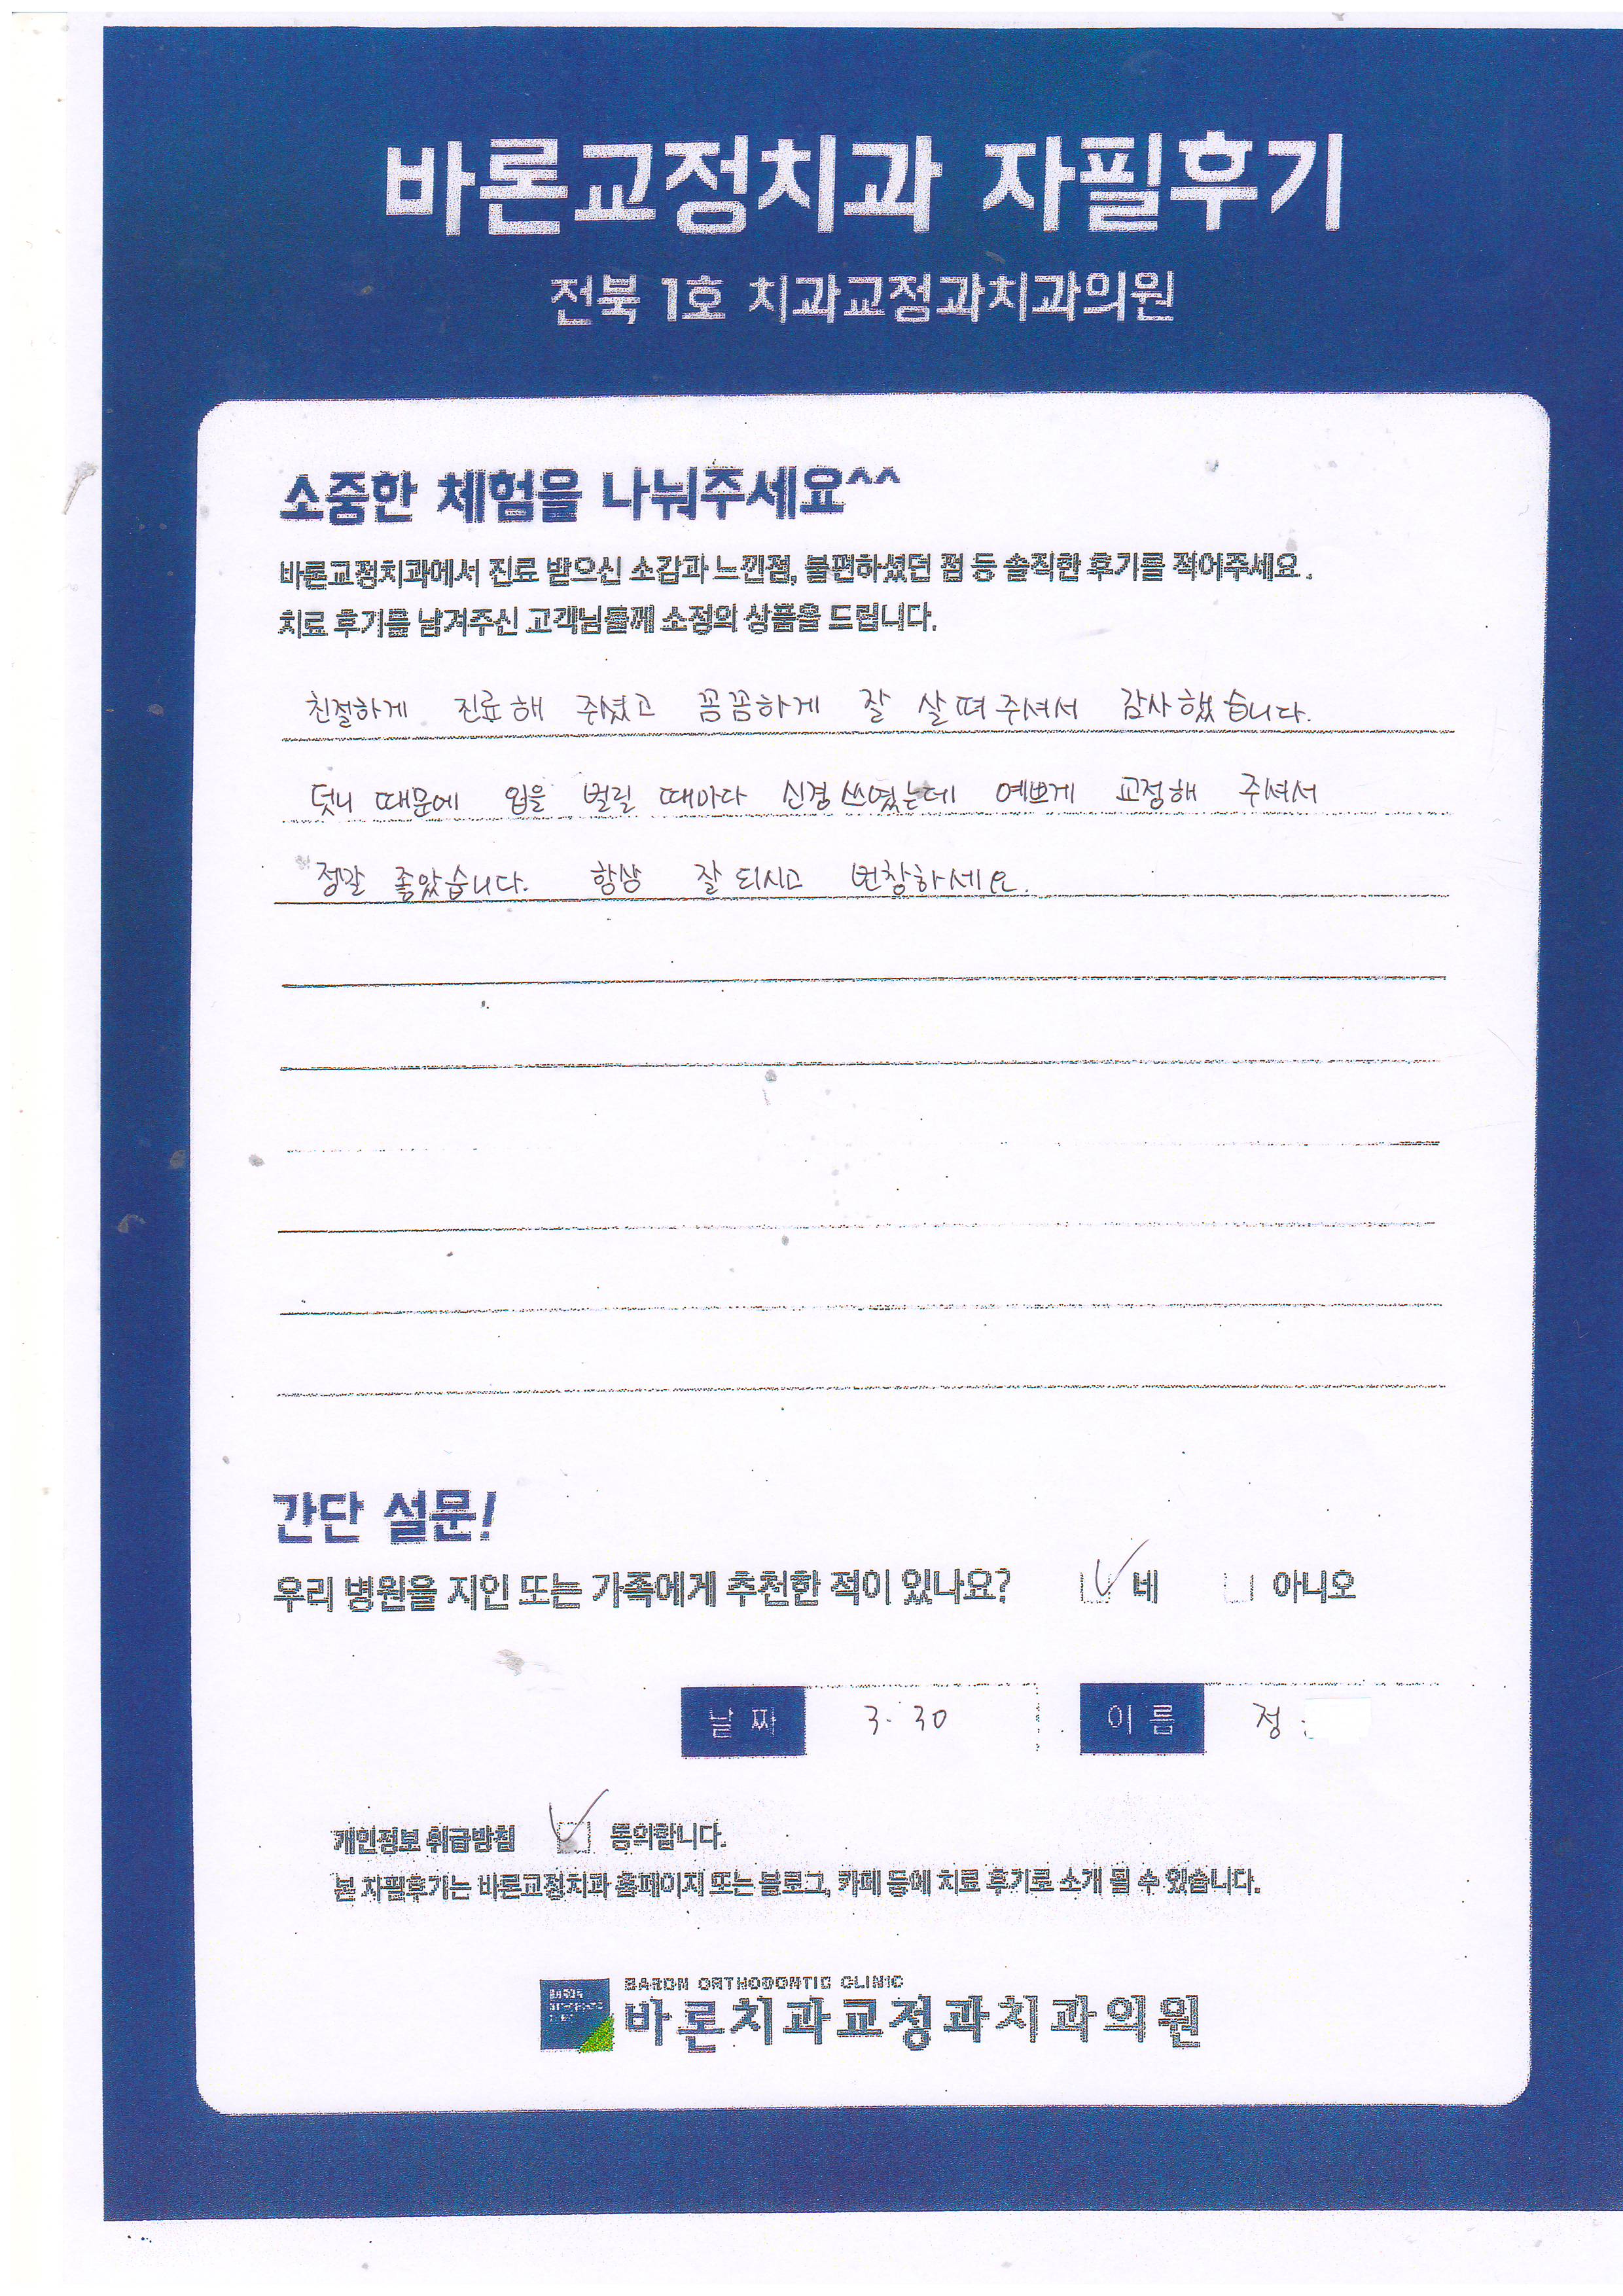 바론교정치과 자필후기
전북 1호 치과교정과치과의원
소중한 체험을 나눠주세요^^
바론교정치과에서 진료 받으신 소감과 느낀점, 불편하셨던 점 등 솔직한 후기를 적어주세요.
치료 후기를 남겨주신 고객님들께 소정의 상품을 드립니다.
친절하게 진료해 주셨고 꼼꼼하게 잘 살펴주셔서 감사했습니다.
덧니 때문에 입을 벌릴 때마다 신경 쓰였는데 예쁘게 교정해 주셔서
정말 좋았습니다. 항상 잘 되시고 번창하세요.
간단 설문!
우리 병원을 지인 또는 가족에게 추천한 적이 있나요? 네 아니오
날짜 3. 30 이름 정
개인정보 취급방침 동의합니다.
본 자필후기는 바론교정치과 홈페이지 또는 블로그, 카페 등에 치료 후기로 소개 될 수 있습니다.
BARON ORTHODONTIC CLINIC
바론치과교정과치과의원